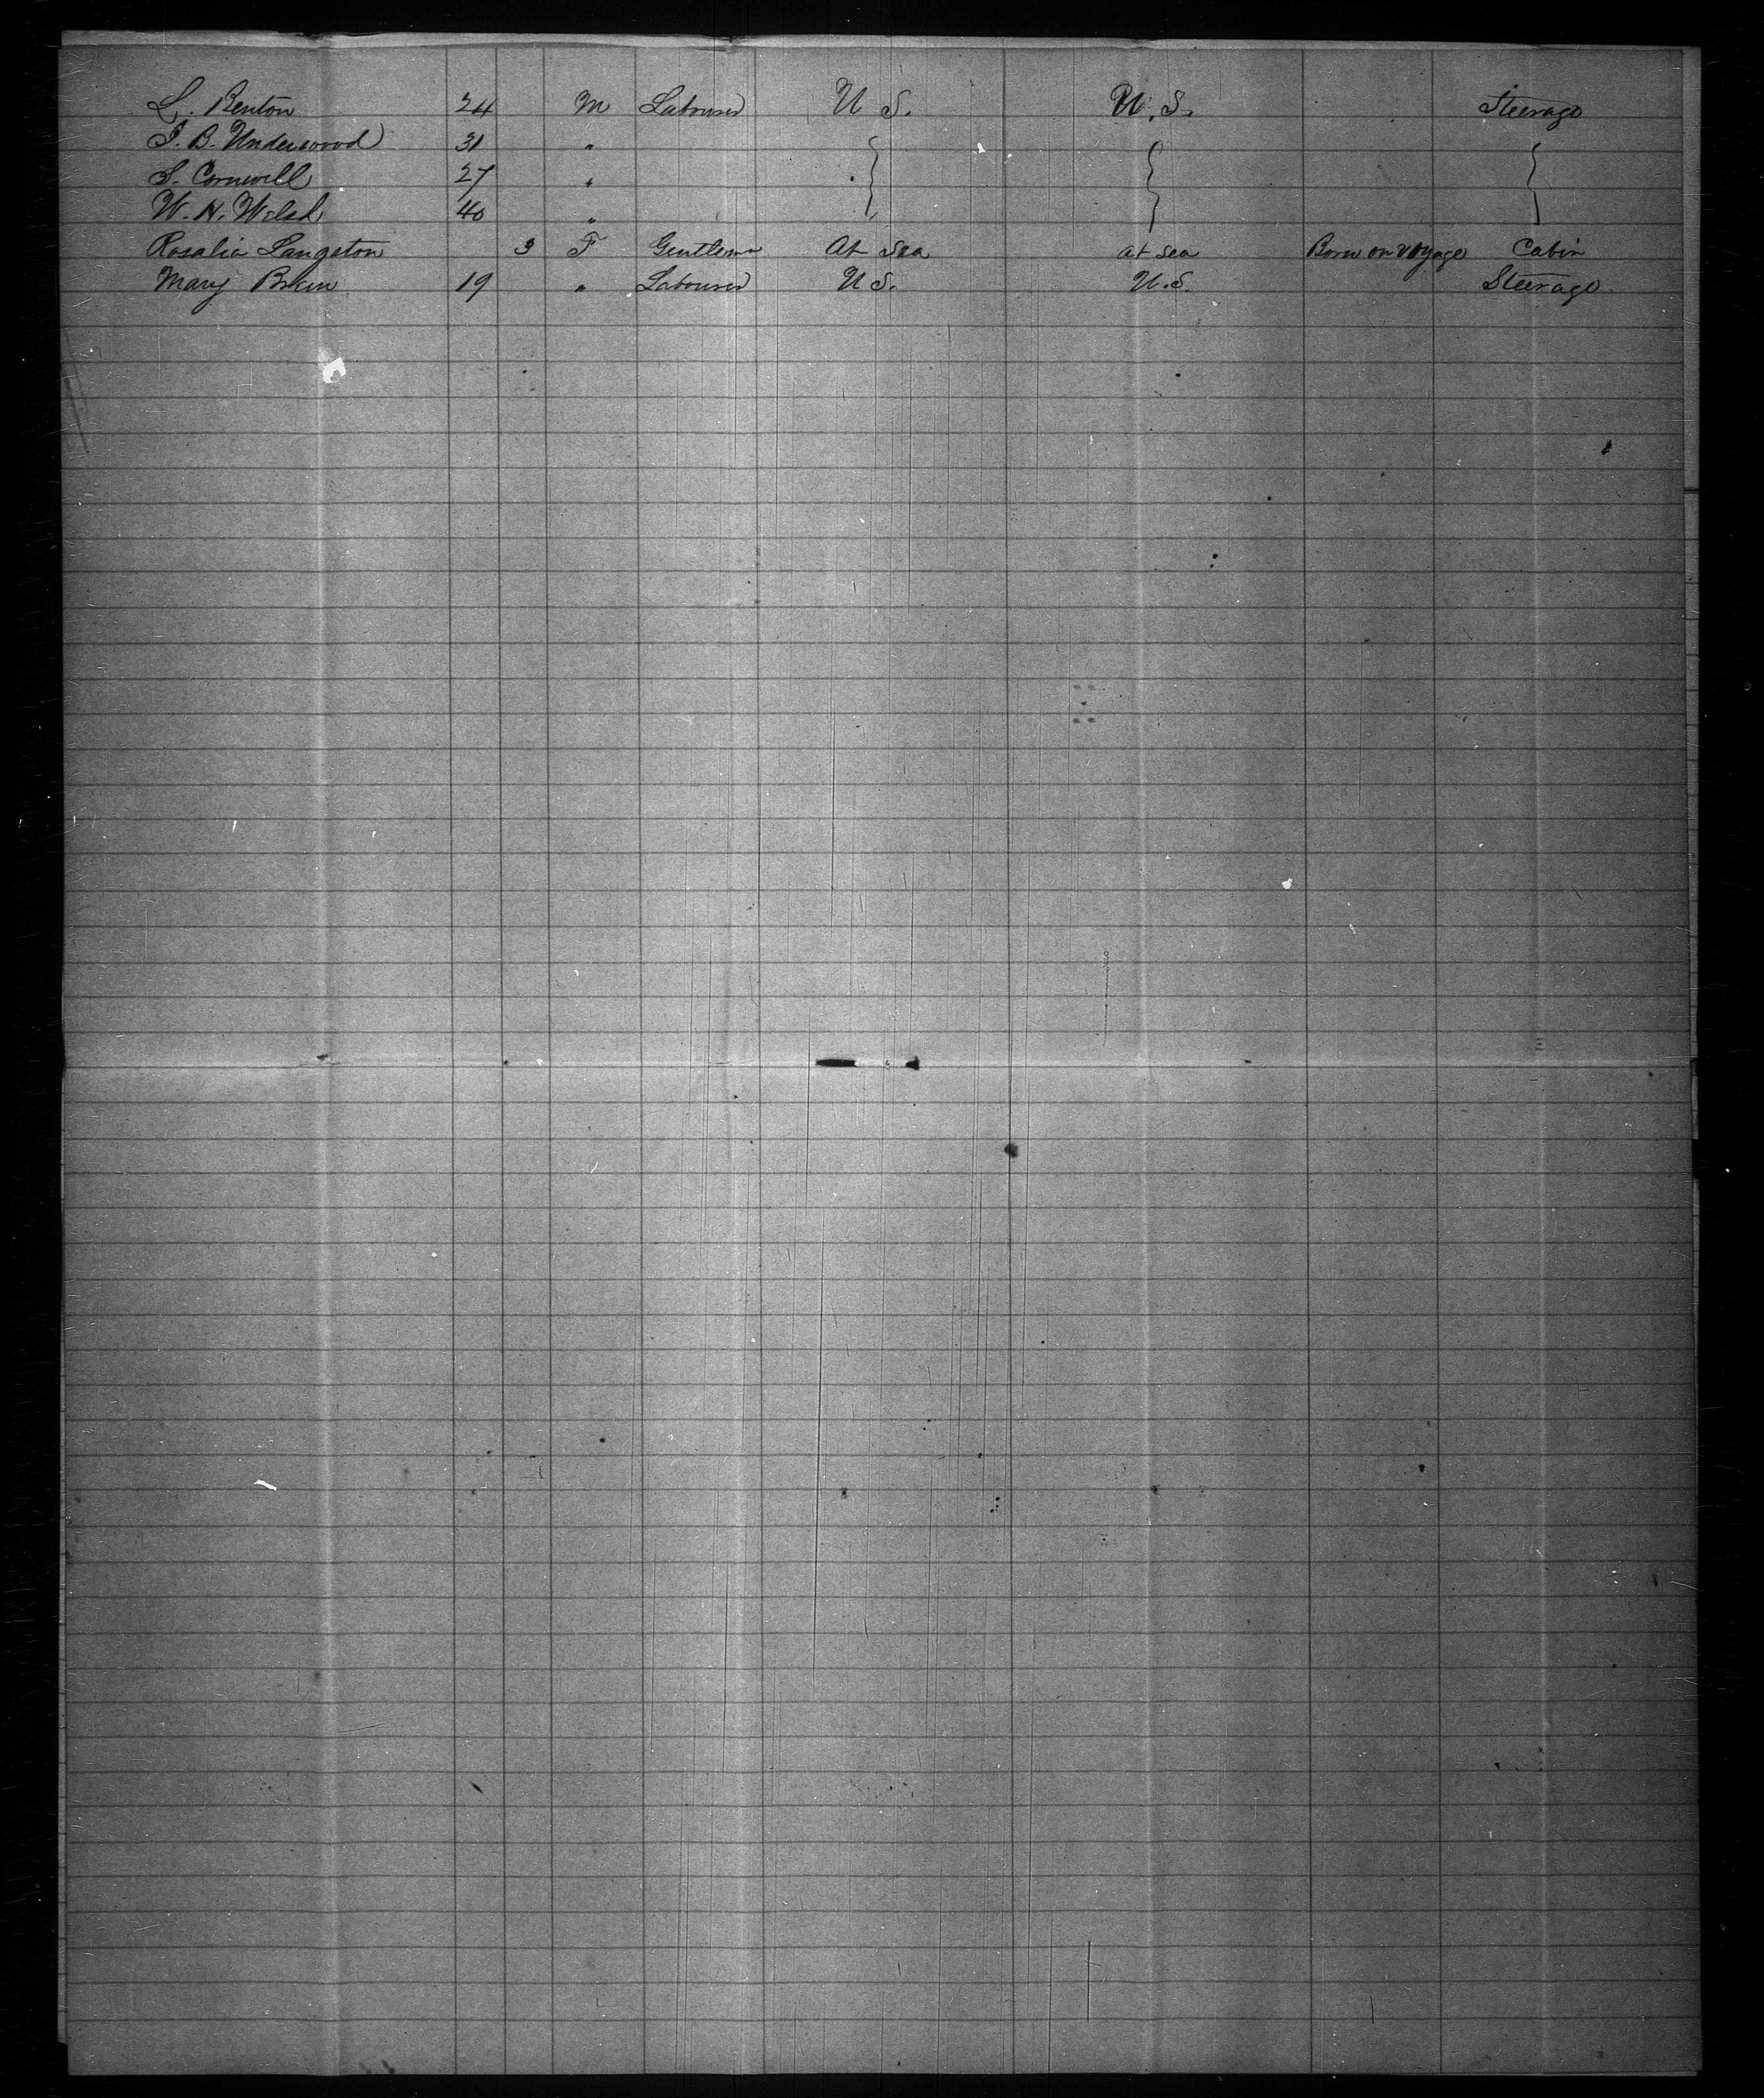 L. Benton 24 M Labourer U S. U. S. Steerage
J. B. Underwood 31 "
S. Cornwell 27 "
W. H. Welsh 40 "
Rosalia Langston 3 F Gentlem At Sea at sea Born on voyage Cabin
Mary 19 " Labourer U S. U. S. Steerage